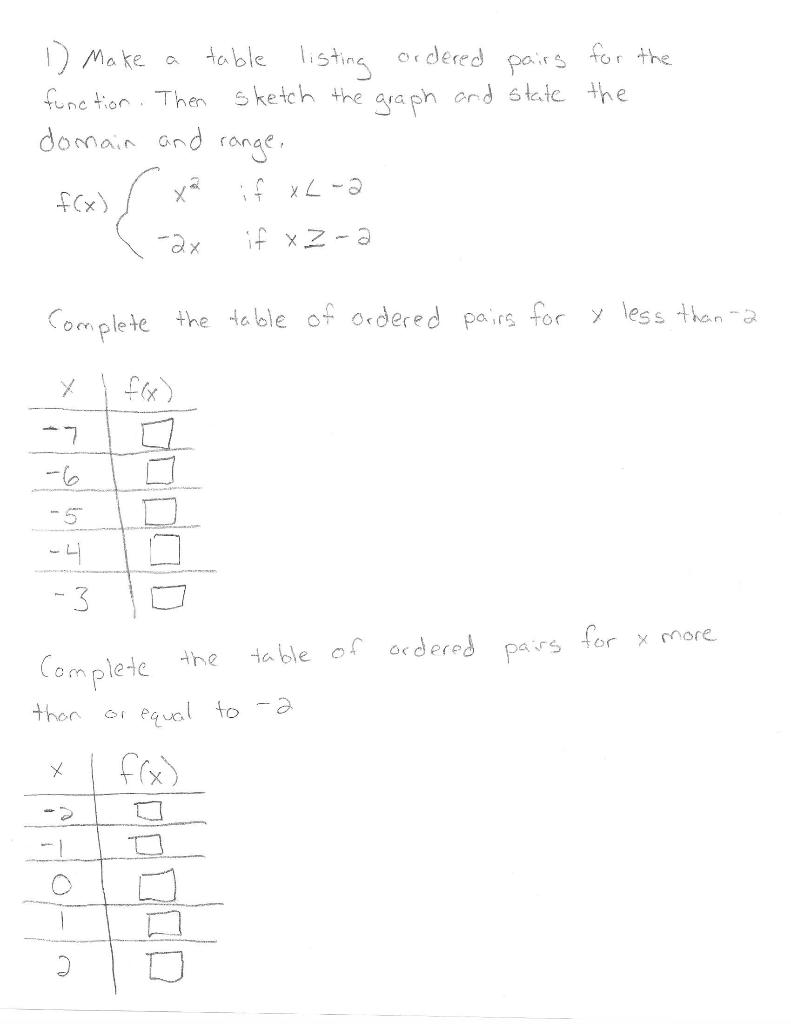 1) Make a table listing ordered pairs for the
function. Then sketch the graph and state the
domain and range.
f(x) { x² if x < -2
-2x if x ≥ -2
Complete the table of ordered pairs for x less than -2
x | f(x)
-7 | □
-6 | □
-5 | □
-4 | □
-3 | □
Complete the table of ordered pairs for x more
than or equal to -2
x | f(x)
-2 | □
-1 | □
0 | □
1 | □
2 | □